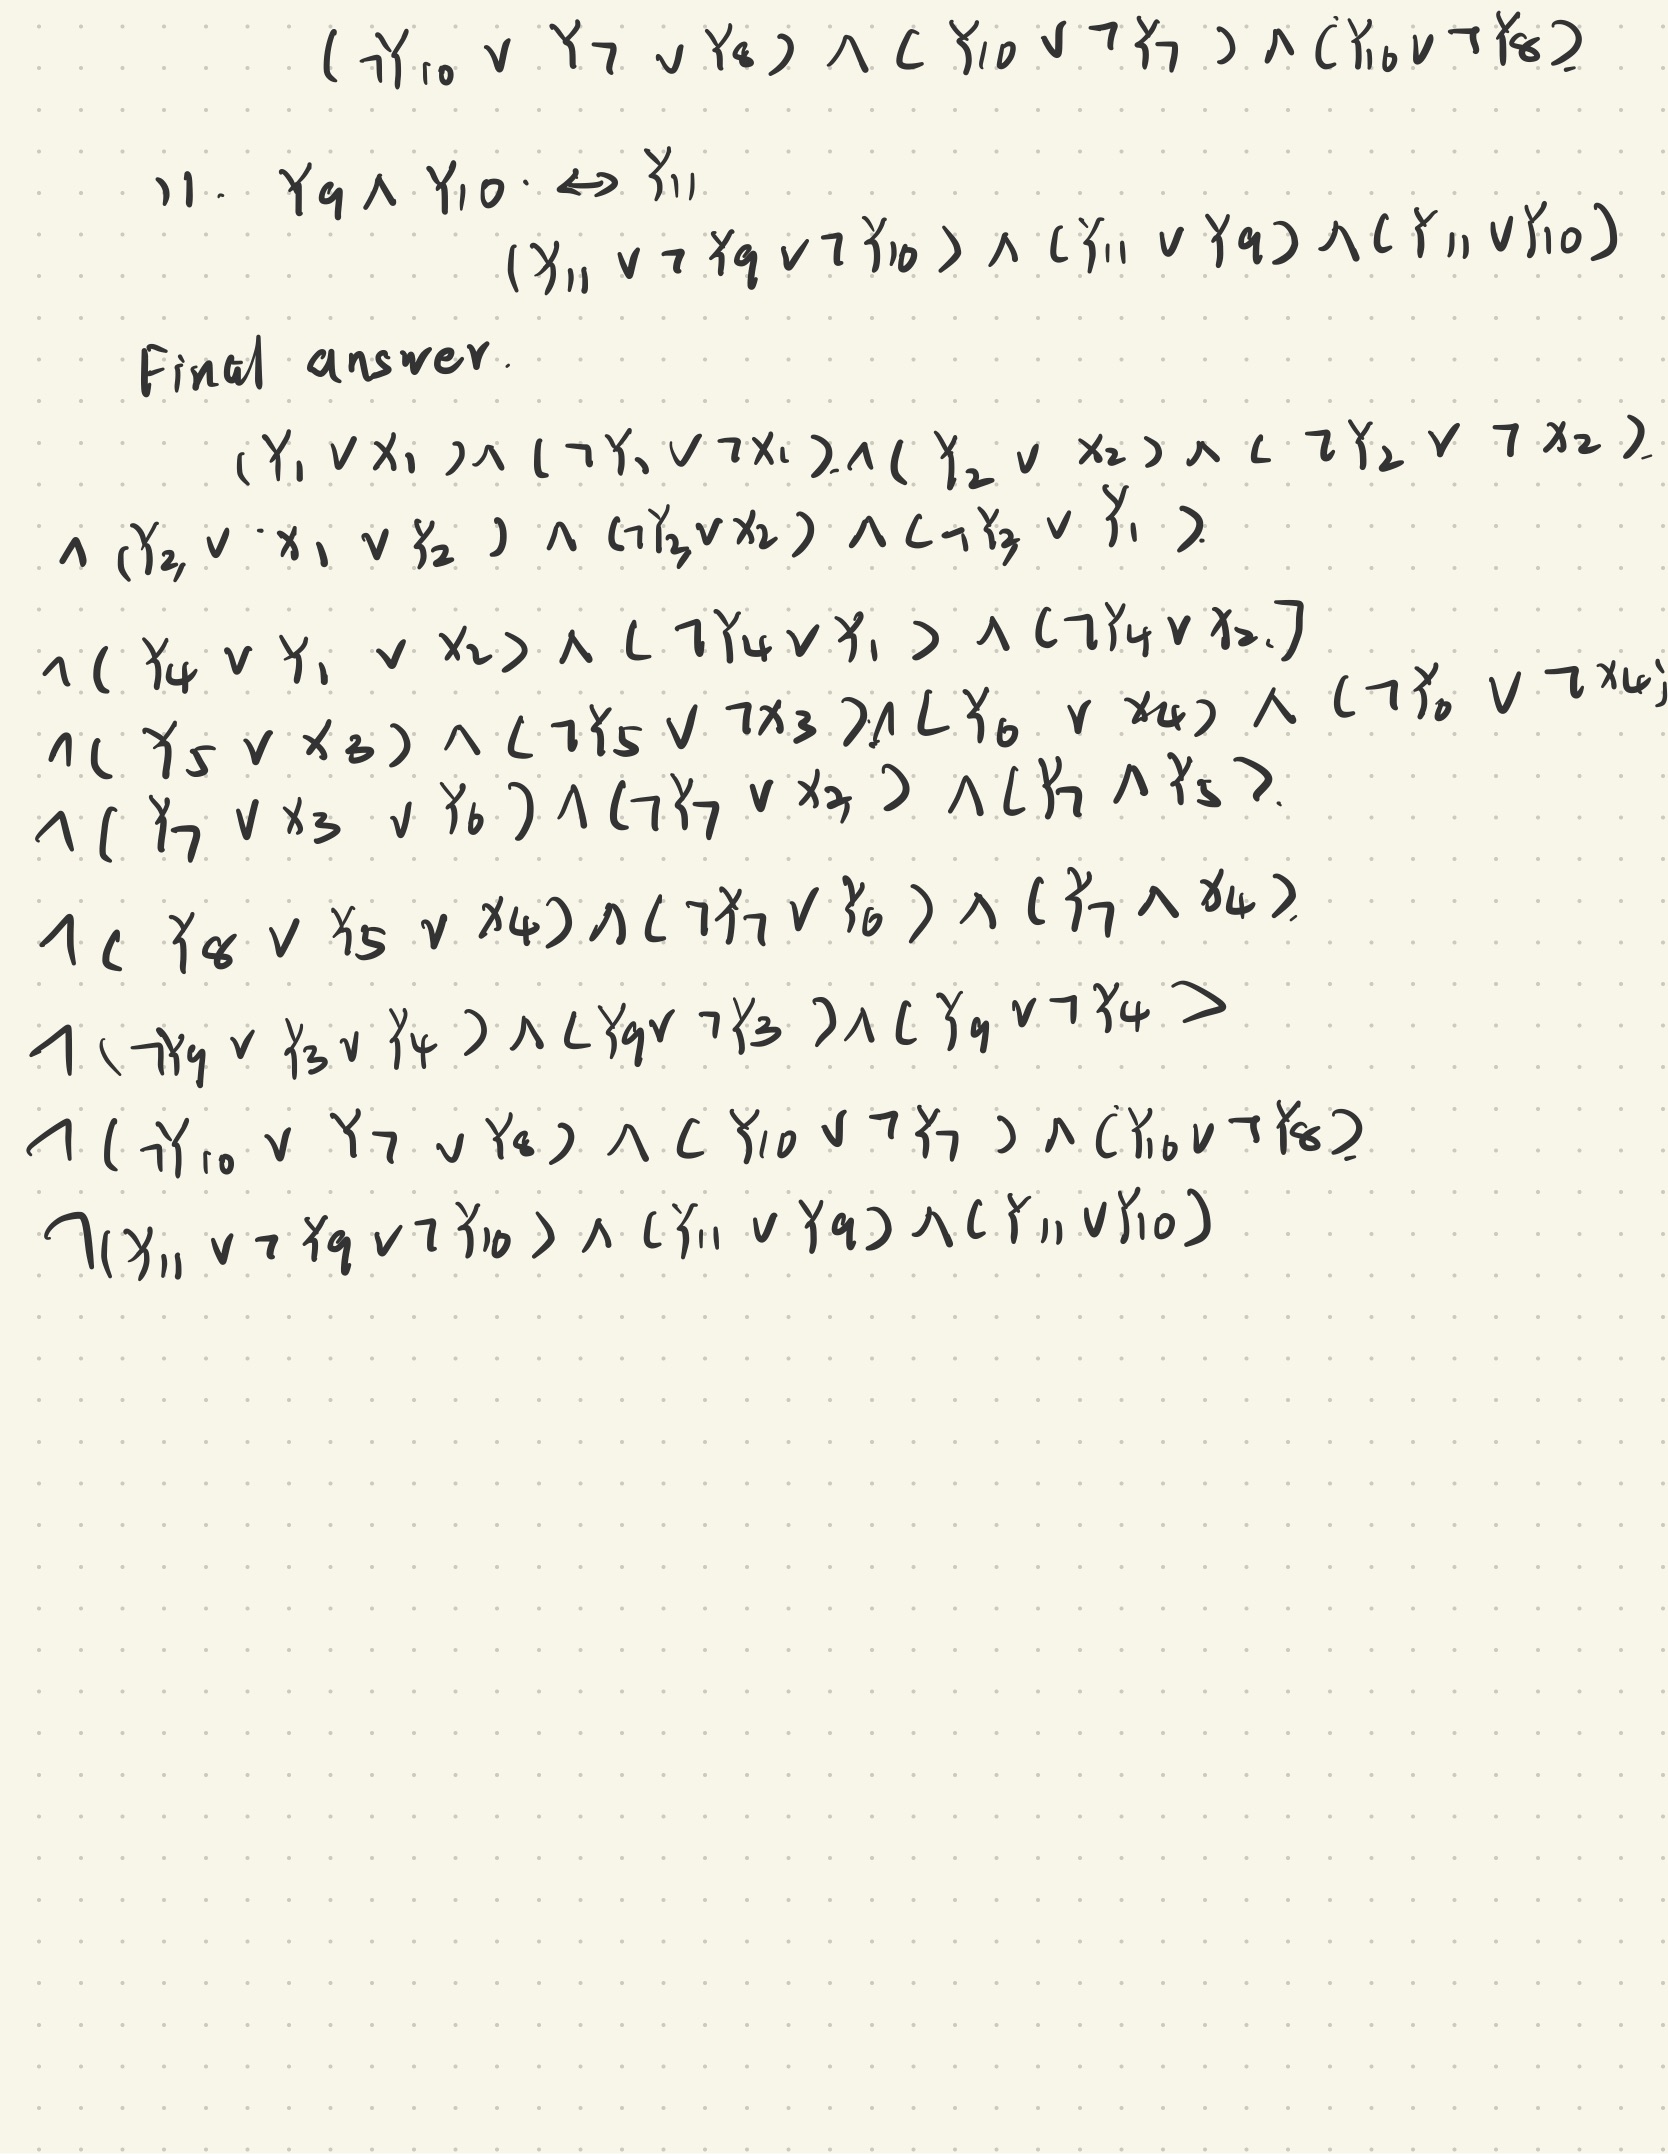 (¬Y₁₀ ∨ Y₇ ∨ Y₈) ∧ (Y₁₀ ∨ ¬Y₇) ∧ (Y₁₀ ∨ ¬Y₈)
11. Y₉ ∧ Y₁₀ ↔ Y₁₁
(Y₁₁ ∨ ¬Y₉ ∨ ¬Y₁₀) ∧ (Y₁₁ ∨ Y₉) ∧ (Y₁₁ ∨ Y₁₀)
Final answer.
(Y₁ ∨ X₁) ∧ (¬Y₁ ∨ ¬X₁) ∧ (Y₂ ∨ X₂) ∧ (¬Y₂ ∨ ¬X₂)
∧ (Y₃ ∨ X₁ ∨ Y₂) ∧ (¬Y₃ ∨ X₂) ∧ (¬Y₃ ∨ Y₁)
∧ (Y₄ ∨ Y₁ ∨ X₂) ∧ (¬Y₄ ∨ Y₁) ∧ (¬Y₄ ∨ X₂]
∧ (Y₅ ∨ X₃) ∧ (¬Y₅ ∨ ¬X₃) ∧ (Y₆ ∨ X₄) ∧ (¬Y₆ ∨ ¬X₄)
∧ (Y₇ ∨ X₃ ∨ Y₆) ∧ (¬Y₇ ∨ X₃) ∧ (Y₇ ∧ Y₅)
∧ (Y₈ ∨ Y₅ ∨ X₄) ∧ (¬Y₇ ∨ Y₆) ∧ (Y₇ ∧ X₄)
∧ (¬Y₉ ∨ Y₃ ∨ Y₄) ∧ (Y₉ ∨ ¬Y₃) ∧ (Y₉ ∨ ¬Y₄)
∧ (¬Y₁₀ ∨ Y₇ ∨ Y₈) ∧ (Y₁₀ ∨ ¬Y₇) ∧ (Y₁₀ ∨ ¬Y₈)
∧ (Y₁₁ ∨ ¬Y₉ ∨ ¬Y₁₀) ∧ (Y₁₁ ∨ Y₉) ∧ (Y₁₁ ∨ Y₁₀)